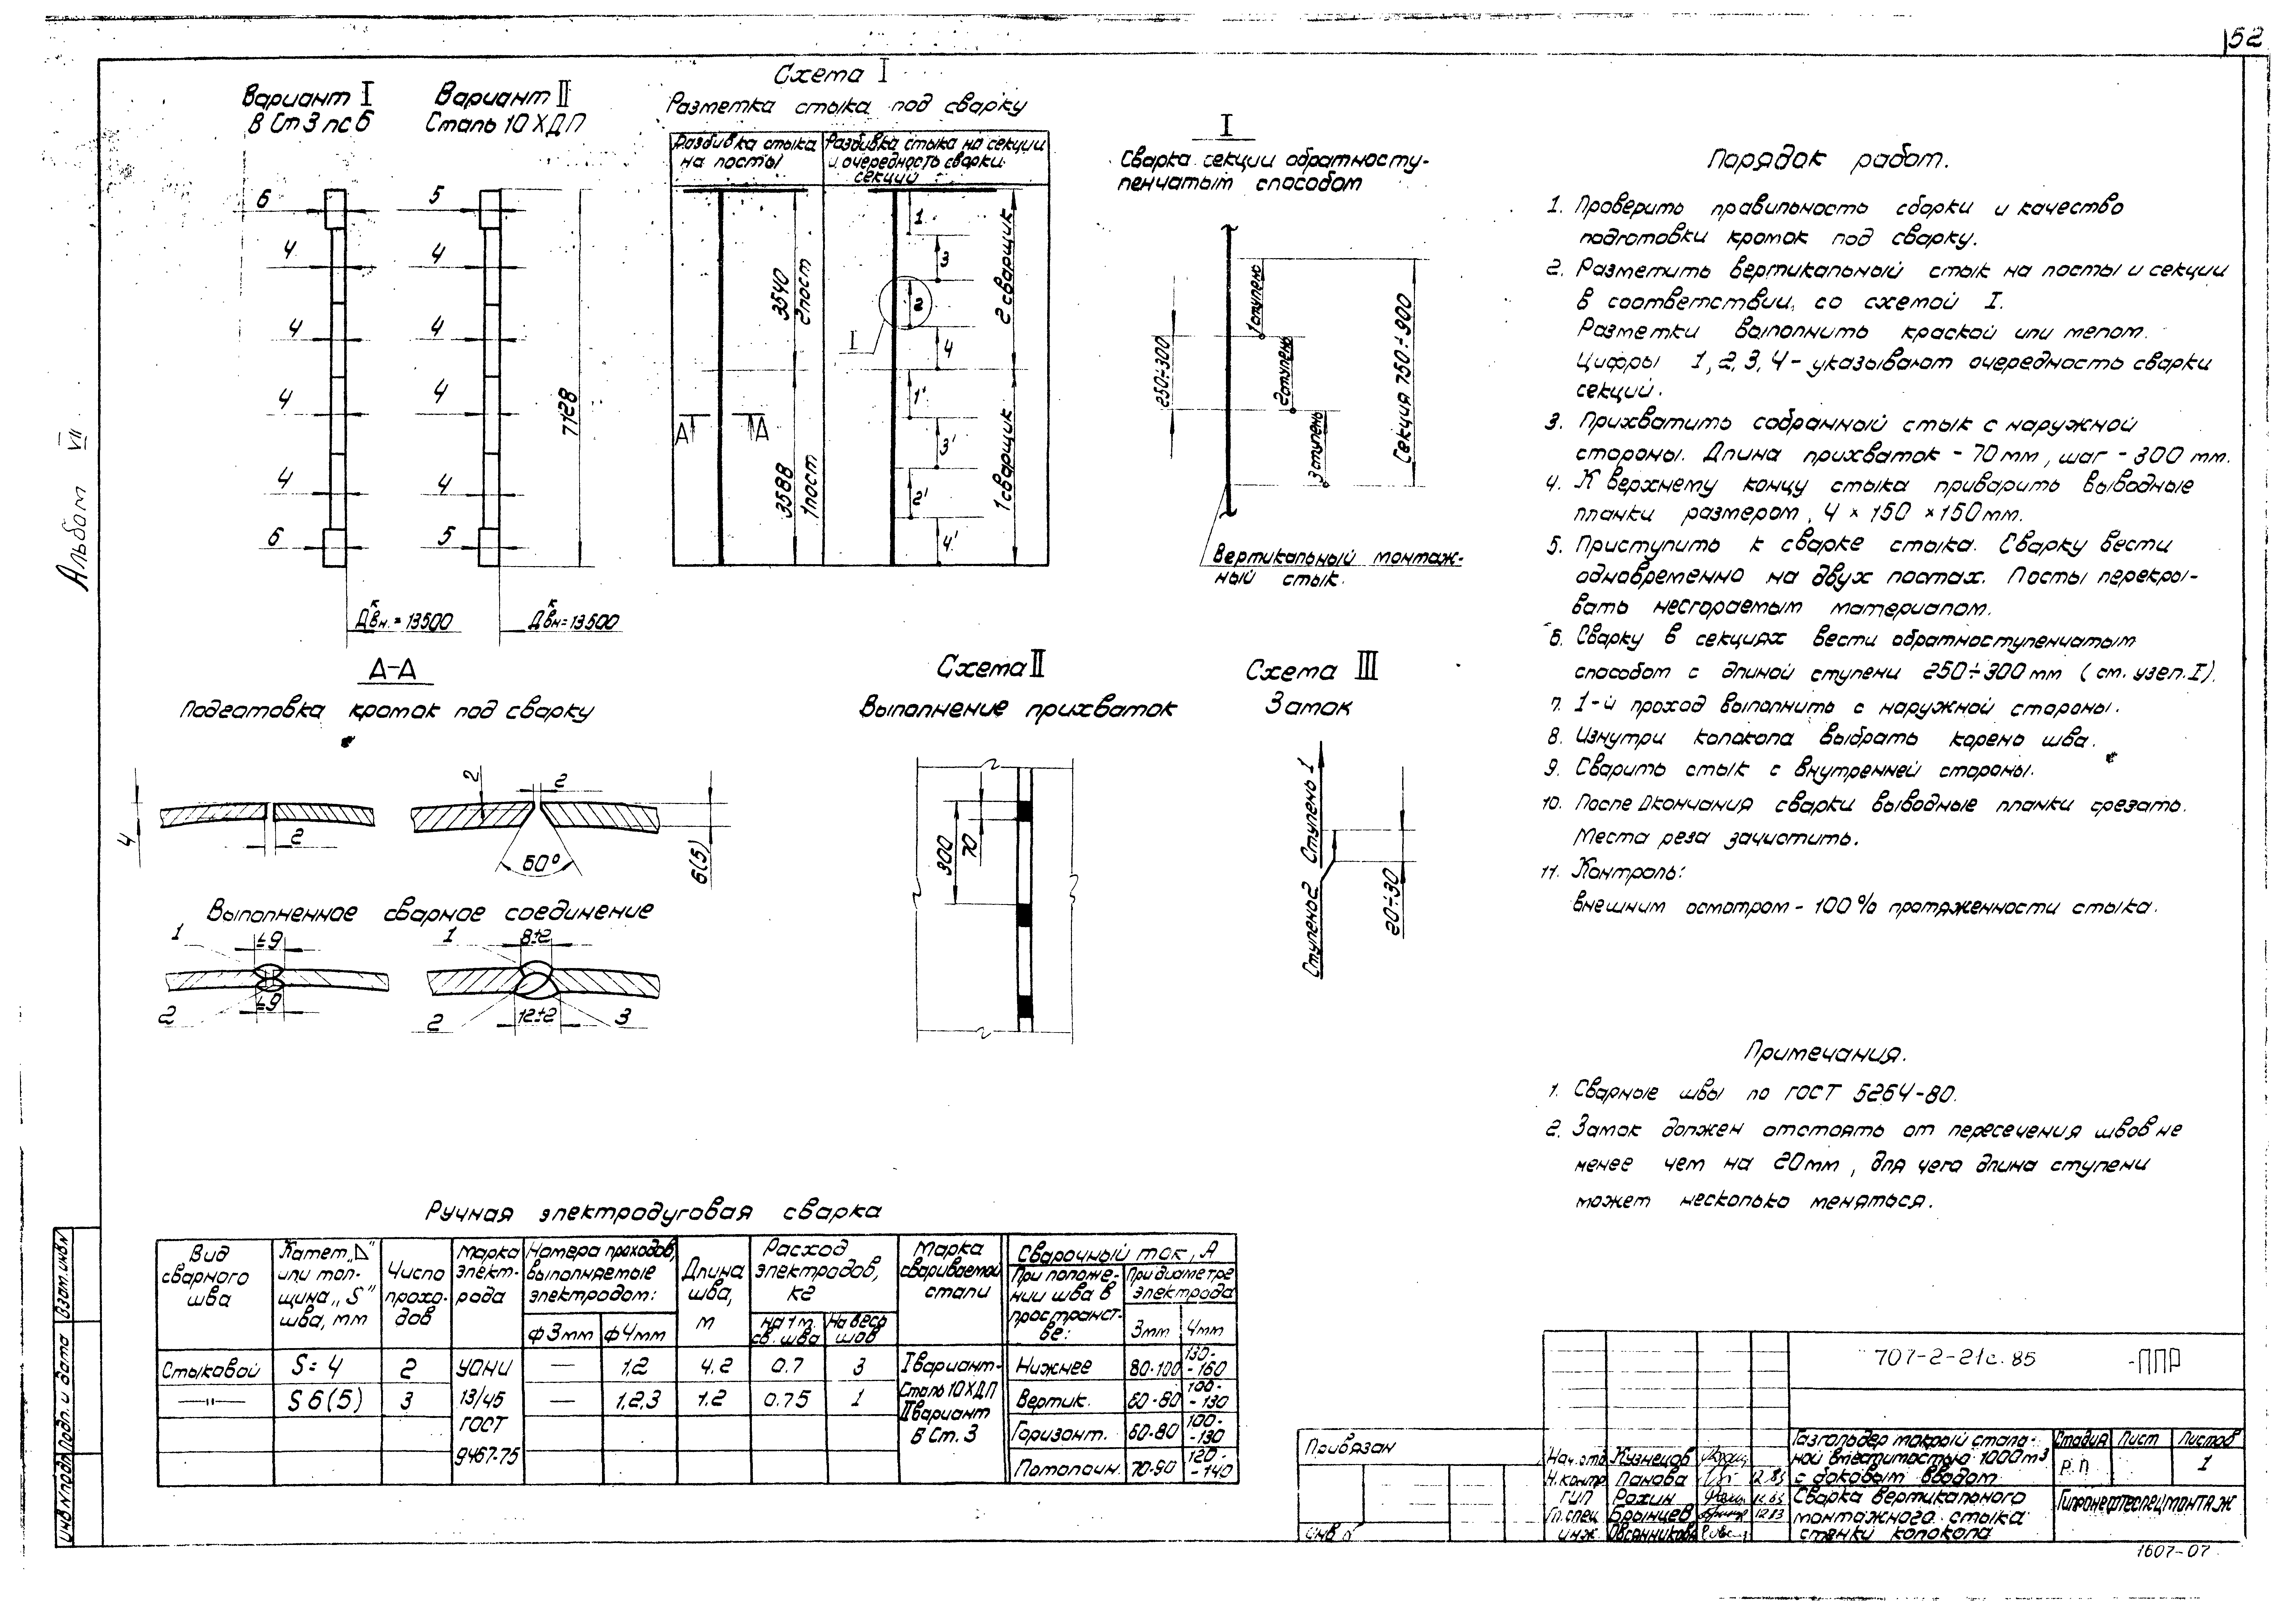 52
Альбом VII
Вариант I
В Ст 3 пс 6
Вариант II
Сталь 10 ХДП
6
4
4
4
4
6
5
4
4
4
4
5
7128
Двн.к = 13500
Двнк = 13500
Схема I
Разметка стыка под сварку
Разбивка стыка
на посты
Разбивка стыка на секции
и очередность сварки
секций
3540
2 пост
3588
1 пост
А
А
1
3
2
4
1'
3'
2'
4'
I
2 сварщик
1 сварщик
I
Сварка секции обратносту-
пенчатым способом
1 ступень
2 ступень
3 ступень
250÷300
Секция 750÷900
Вертикальный монтаж-
ный стык.
А-А
Подготовка кромок под сварку
4
2
2
2
60°
6(5)
Выполненное сварное соединение
1
≤9
≤9
2
1
8±2
2
12±2
3
Схема II
Выполнение прихваток
300
70
Схема III
Замок
Ступень 1
Ступень 2
20÷30
Порядок работ.
1. Проверить правильность сборки и качество
подготовки кромок под сварку.
2. Разметить вертикальный стык на посты и секции
в соответствии, со схемой I.
Разметки выполнить краской или мелом.
Цифры 1, 2, 3, 4 - указывают очередность сварки
секций.
3. Прихватить собранный стык с наружной
стороны. Длина прихваток - 70 мм, шаг - 300 мм.
4. К верхнему концу стыка приварить выводные
планки размером, 4 × 150 × 150 мм.
5. Приступить к сварке стыка. Сварку вести
одновременно на двух постах. Посты перекры-
вать несгораемым материалом.
6. Сварку в секциях вести обратноступенчатым
способом с длиной ступени 250÷300 мм (см. узел. I).
7. 1-й проход выполнить с наружной стороны.
8. Изнутри колокола выбрать корень шва.
9. Сварить стык с внутренней стороны.
10. После окончания сварки выводные планки срезать.
Места реза зачистить.
11. Контроль:
внешним осмотром - 100% протяженности стыка.
Примечания.
1. Сварные швы по ГОСТ 5264-80.
2. Замок должен отстоять от пересечения швов не
менее чем на 20 мм, для чего длина ступени
может несколько меняться.
Ручная электродуговая сварка
Вид сварного шва
Катет „⊿" или тол- щина „S" шва, мм
Число прохо- дов
Марка элект- рода
Номера проходов, выполняемые электродом:
ф 3 мм
ф 4 мм
Длина шва, м
Расход электродов, кг
на 1 м. св. шва
На весь шов
Марка свариваемой стали
Сварочный ток, А
При положе- нии шва в пространст- ве:
При диаметре электрода
3 мм
4 мм
Стыковой S = 4 2 УОНИ — 1,2 4.2 0.7 3
—"— S 6 (5) 3 13/45 — 1,2,3 1.2 0.75 1
ГОСТ
9467-75
I вариант-
Сталь 10 ХДП
II вариант
В Ст. 3
Нижнее 80-100 130-160
Вертик. 60-80 100-130
Горизонт. 60-80 100-130
Потолочн. 70-90 120-140
707-2-21с.85 -ППР
Привязан
ИНВ N
Нач. отд. Кузнецов
Н. контр. Панова 12.83
ГИП Рохин 12.83
Гл. спец. Брынцев 12.83
инж. Овсянникова
Газгольдер мокрый сталь-
ной вместимостью 1000 м³
с боковым вводом
Сварка вертикального
монтажного стыка
стенки колокола
Стадия Лист Листов
Р.П 1
Гипронефтеспецмонтаж
1607-07
Взам. инв N
Подп. и дата
Инв N подл.